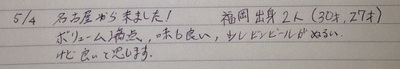 5/4 名古屋から来ました! 福岡出身2人(30才,27才)
ボリューム満点、味も良い、少しビンビールがぬるい
けど良いて思います.